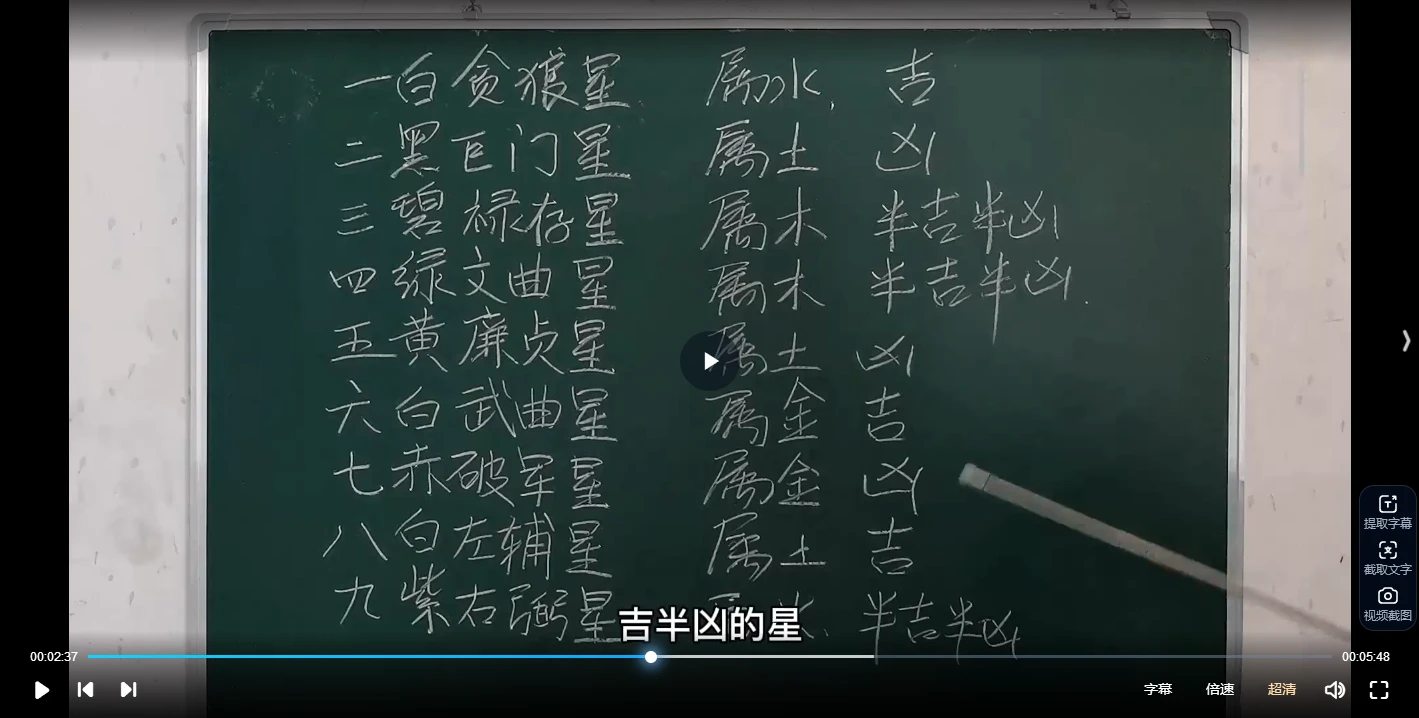 一白贪狼星 属水, 吉
二黑巨门星 属土 凶
三碧禄存星 属木 半吉半凶
四绿文曲星 属木 半吉半凶.
五黄廉贞星 属土 凶
六白武曲星 属金 吉
七赤破军星 属金 凶
八白左辅星 属土 吉
九紫右弼星 半吉半凶
吉半凶的星
提取字幕
截取文字
视频截图
00:02:37 00:05:48
字幕 倍速 超清